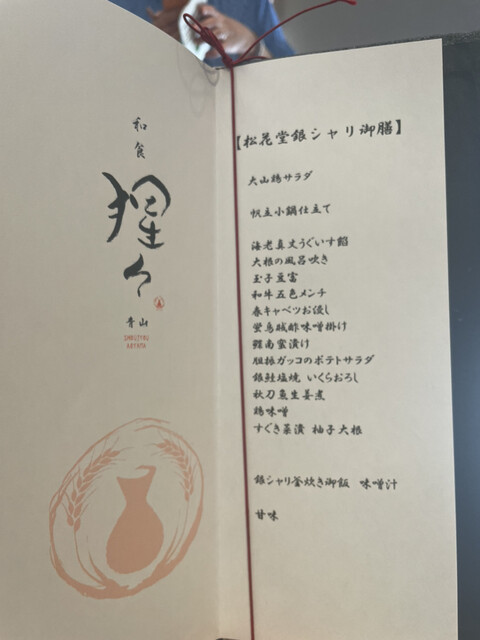 和食
猩々
青山
SHOUJYOU
AOYAMA
【松花堂銀シャリ御膳】
大山鶏サラダ
帆立小鍋仕立て
海老真丈うぐいす餡
大根の風呂吹き
玉子豆富
和牛五色メンチ
春キャベツお浸し
蛍烏賊酢味噌掛け
鰹南蛮漬け
胆振ガッコのポテトサラダ
銀鮭塩焼 いくらおろし
秋刀魚生姜煮
鶏味噌
すぐき菜漬 柚子大根
銀シャリ釜炊き御飯 味噌汁
甘味